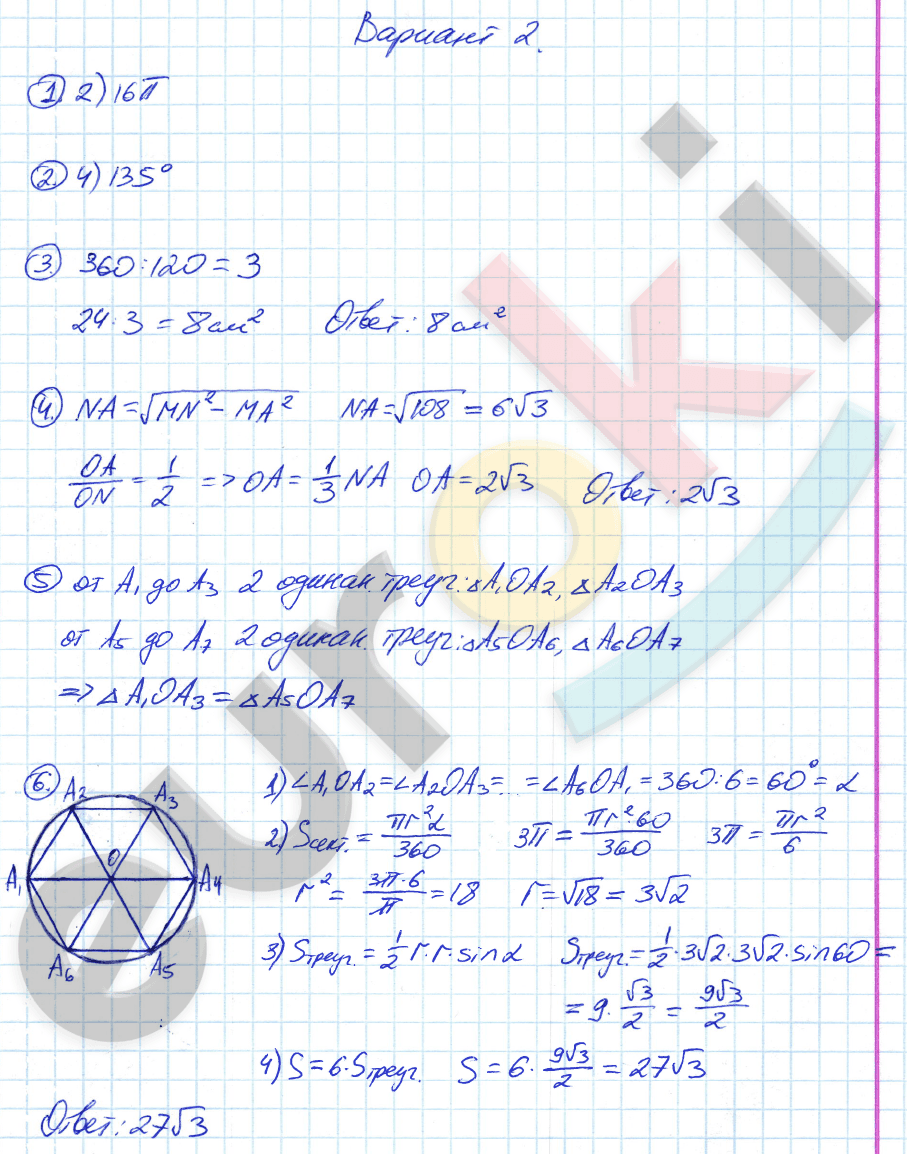 Вариант 2.
1. 2) 16π
2. 4) 135°
3. 360:120 = 3
24:3 = 8 см² Ответ: 8 см²
4. NA = √(MN² - MA²) NA = √108 = 6√3
OA/ON = 1/2 => OA = 1/3 NA OA = 2√3 Ответ: 2√3
5 от A₁ до A₃ 2 одинак. треуг.: △A₁OA₂, △A₂OA₃
от A₅ до A₇ 2 одинак. треуг.: △A₅OA₆, △A₆OA₇
=> △A₁OA₃ = △A₅OA₇
6. 1) ∠A₁OA₂ = ∠A₂OA₃ = ... = ∠A₆OA₁ = 360:6 = 60° = α
2) Sсект. = πr²α/360 3π = πr²·60/360 3π = πr²/6
r² = 3π·6/π = 18 r = √18 = 3√2
3) Sтреуг. = 1/2 r·r·sinα Sтреуг. = 1/2·3√2·3√2·sin60 =
= 9·√3/2 = 9√3/2
4) S = 6·Sтреуг. S = 6·9√3/2 = 27√3
A₂ A₃
O
A₁ A4
A₆ A₅
Ответ: 27√3
euroki